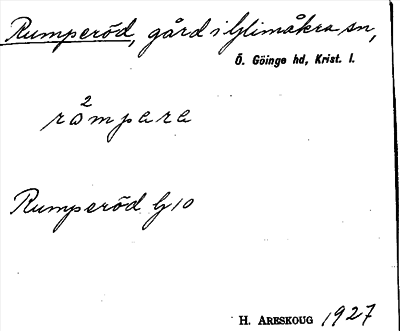 Rumperöd, gård i Glimåkra sn,
Ö. Göinge hd, Krist. l.
2
råmpara
Rumperöd G 10
H. ARESKOUG 1927